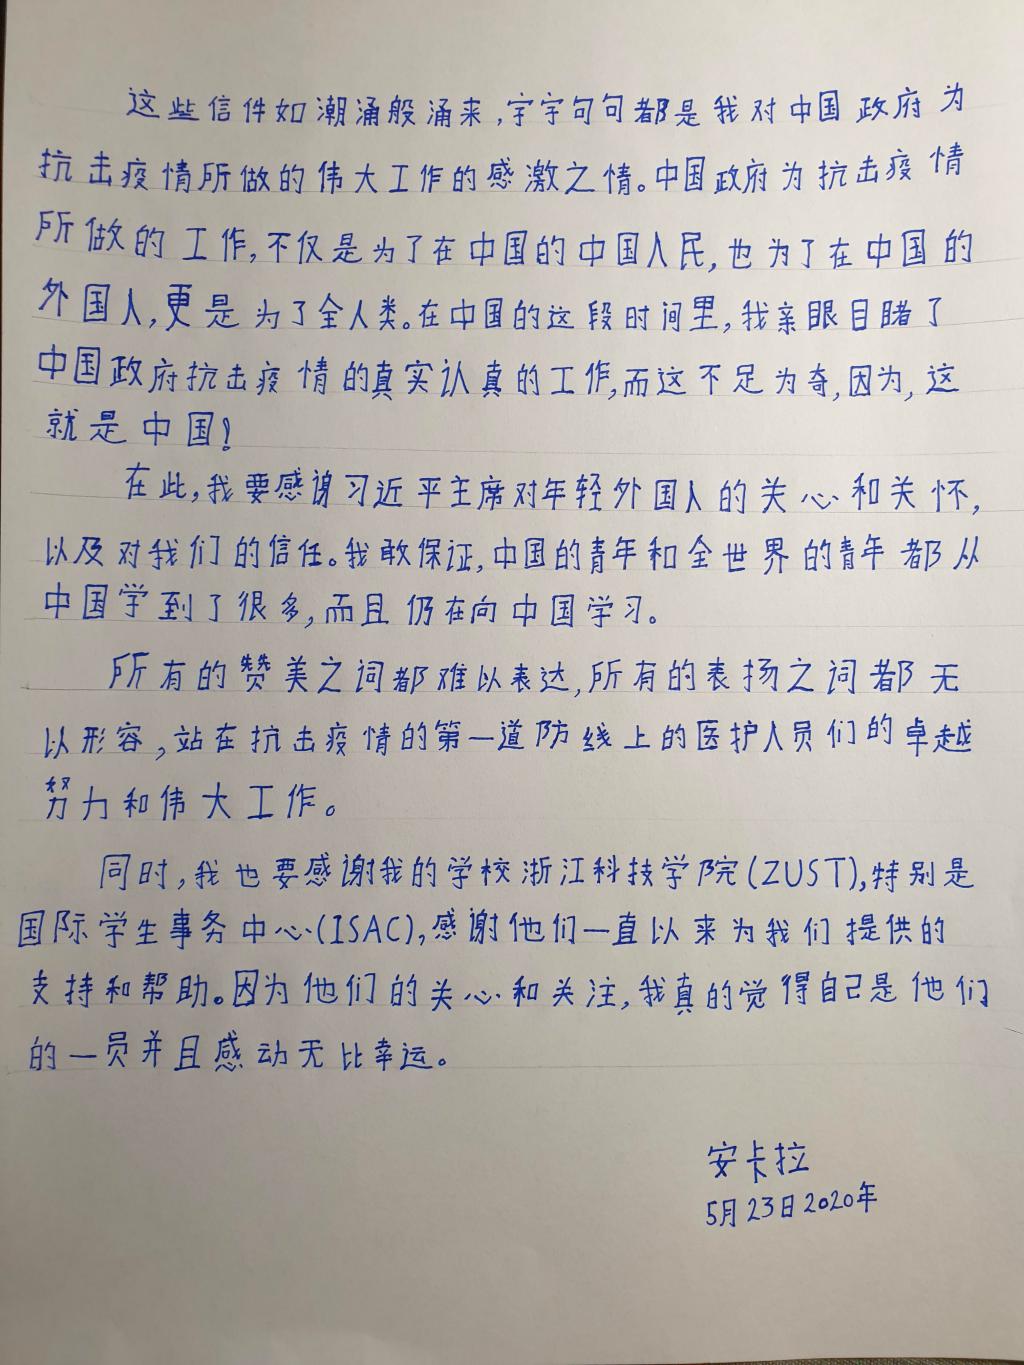 这些信件如潮涌般涌来,字字句句都是我对中国政府为
抗击疫情所做的伟大工作的感激之情。中国政府为抗击疫情
所做的工作,不仅是为了在中国的中国人民,也为了在中国的
外国人,更是为了全人类。在中国的这段时间里,我亲眼目睹了
中国政府抗击疫情的真实认真的工作,而这不足为奇,因为,这
就是中国!
在此,我要感谢习近平主席对年轻外国人的关心和关怀,
以及对我们的信任。我敢保证,中国的青年和全世界的青年都从
中国学到了很多,而且仍在向中国学习。
所有的赞美之词都难以表达,所有的表扬之词都无
以形容,站在抗击疫情的第一道防线上的医护人员们的卓越
努力和伟大工作。
同时,我也要感谢我的学校浙江科技学院(ZUST),特别是
国际学生事务中心(ISAC),感谢他们一直以来为我们提供的
支持和帮助。因为他们的关心和关注,我真的觉得自己是他们
的一员并且感动无比幸运。
安卡拉
5月23日2020年